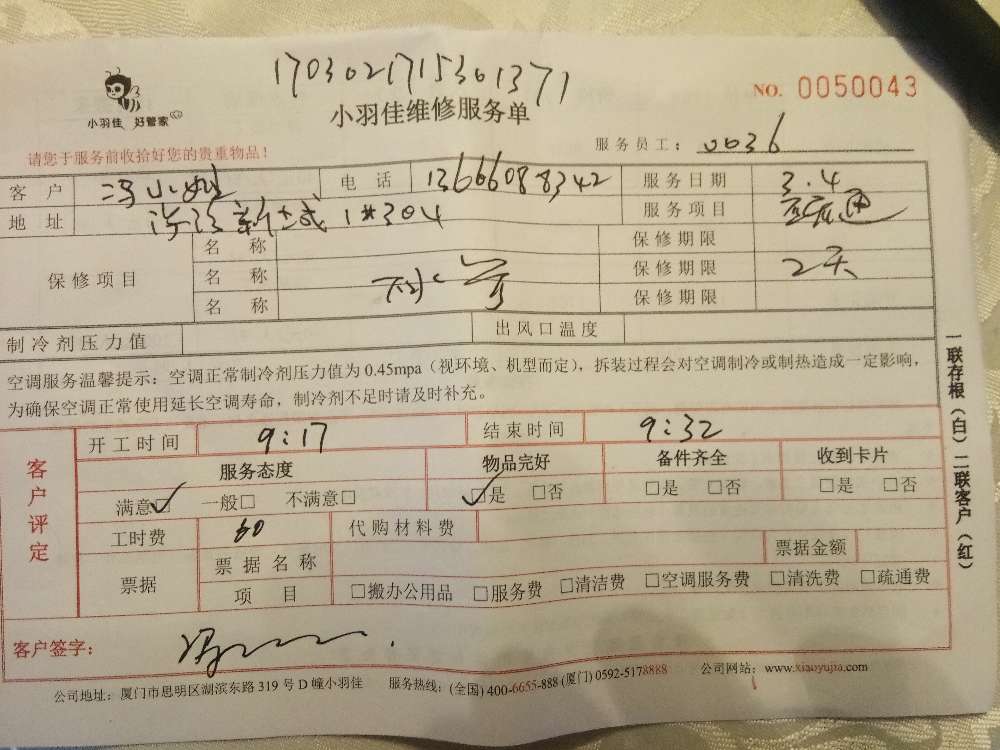 1703021715301371
小羽佳 好管家
小羽佳维修服务单
NO. 0050043
请您于服务前收拾好您的贵重物品！
服务员工： 0036
客 户 冯小姐 电 话 13666088342 服务日期 3.4
地 址 1#304 服务项目
保修项目 名 称 保修期限
名 称 保修期限 2天
名 称 保修期限
制冷剂压力值 出风口温度
空调服务温馨提示：空调正常制冷剂压力值为 0.45mpa（视环境、机型而定），拆装过程会对空调制冷或制热造成一定影响，
为确保空调正常使用延长空调寿命，制冷剂不足时请及时补充。
客户评定
开工时间 9:17 结束时间 9:32
服务态度 物品完好 备件齐全 收到卡片
满意☑ 一般□ 不满意□ ☑是 □否 □是 □否 □是 □否
工时费 60 代购材料费
票据 票据名称 票据金额
项 目 □搬办公用品 □服务费 □清洁费 □空调服务费 □清洗费 □疏通费
客户签字：
公司地址：厦门市思明区湖滨东路 319 号 D 幢小羽佳 服务热线：(全国) 400-6655-888 (厦门) 0592-5178888 公司网站：www.xiaoyujia.com
一联存根（白）二联客户（红）